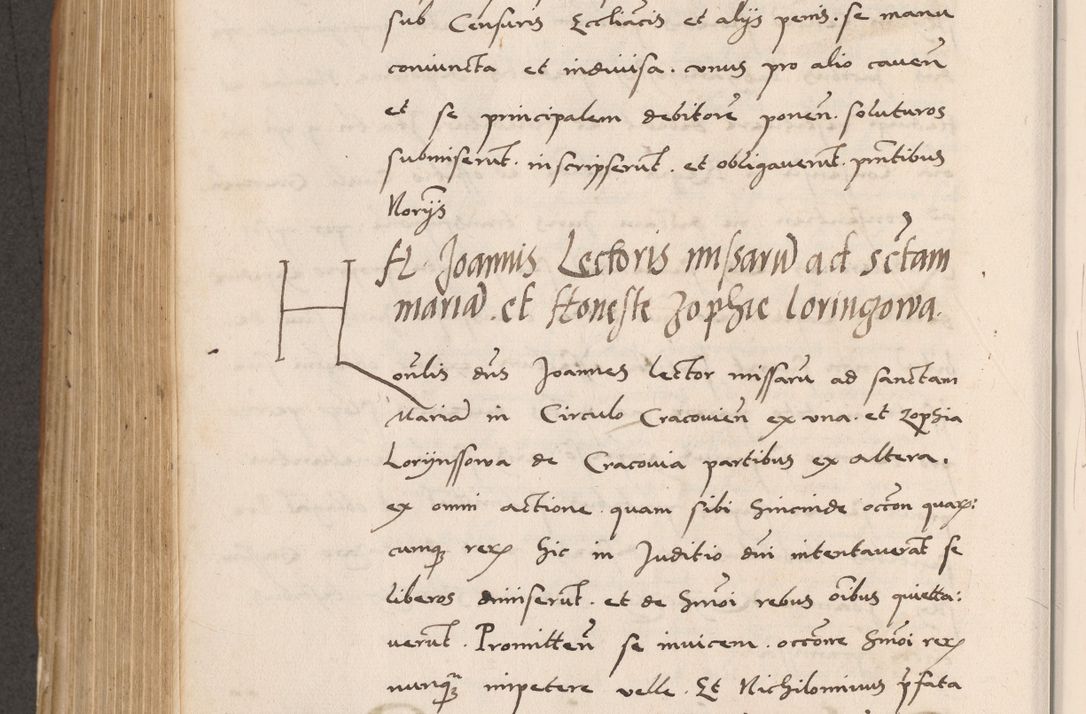 sub Censuris Eccliacis et alijs penis. se manu
coniuncta et indiuisa. vnus pro alio cauen̄
et se principalem debitorē ponen̄. soluturos
submiserūt. inscripserūt. et obligauerūt. pn̄tibus
Norijs
H. Joannis Lectoris missarū ad sc̄tam
mariā. et Honeste Zophie loringowa.
H
onn̄lis dn̄s Joannes lector missarū ad sanctam
Mariā in Circulo Cracouien̄ ex vna. et Zophia
Lorijnssowa de Cracouia partibus ex altera.
ex omni actione. quam sibi hincinde occōn quar:
cumq rerx hic in Juditio dn̄i intentauerāt se
liberos dimiserūt. et de hmōi rebus oībus quietta:
uerūt. Promitten̄ se inuicem. occōne hmōi rerx
nunqz impetere velle. Et Nichilominus p̄fata